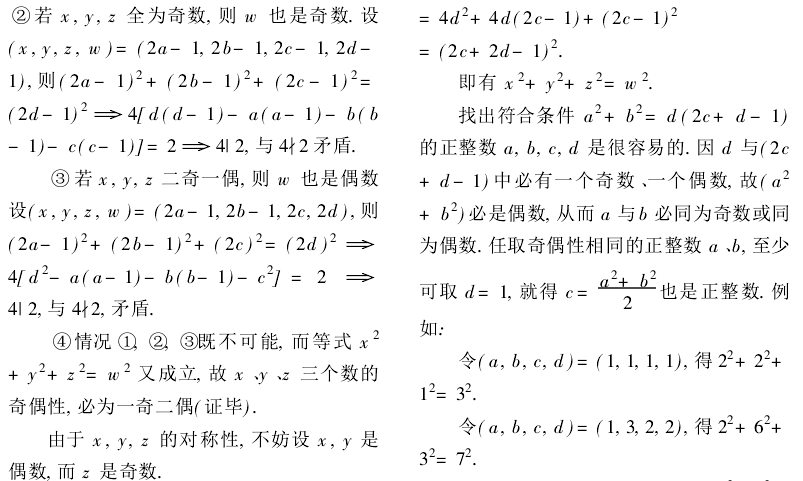 ②若 x, y, z 全为奇数, 则 w 也是奇数. 设
(x, y, z, w) = (2a- 1, 2b- 1, 2c- 1, 2d-
1), 则(2a- 1)²+ (2b- 1)²+ (2c- 1)²=
(2d- 1)² ⟹ 4[d(d- 1)- a(a- 1)- b(b
- 1)- c(c- 1)]= 2 ⟹ 4| 2, 与 4∤2 矛盾.
③若 x, y, z 二奇一偶, 则 w 也是偶数
设(x, y, z, w)= (2a- 1, 2b- 1, 2c, 2d), 则
(2a- 1)²+ (2b- 1)²+ (2c)²= (2d)² ⟹
4[d²- a(a- 1)- b(b- 1)- c²] = 2 ⟹
4| 2, 与 4∤2, 矛盾.
④情况 ①, ②, ③既不可能, 而等式 x²
+ y²+ z²= w² 又成立, 故 x、y、z 三个数的
奇偶性, 必为一奇二偶(证毕).
由于 x, y, z 的对称性, 不妨设 x, y 是
偶数, 而 z 是奇数.
= 4d²+ 4d(2c- 1)+ (2c- 1)²
= (2c+ 2d- 1)².
即有 x²+ y²+ z²= w².
找出符合条件 a²+ b²= d(2c+ d- 1)
的正整数 a, b, c, d 是很容易的. 因 d 与(2c
+ d- 1)中必有一个奇数、一个偶数, 故(a²
+ b²)必是偶数, 从而 a 与 b 必同为奇数或同
为偶数. 任取奇偶性相同的正整数 a、b, 至少
可取 d= 1, 就得 c= (a²+ b²)/2 也是正整数. 例
如:
令(a, b, c, d)= (1, 1, 1, 1), 得 2²+ 2²+
1²= 3².
令(a, b, c, d)= (1, 3, 2, 2), 得 2²+ 6²+
3²= 7².